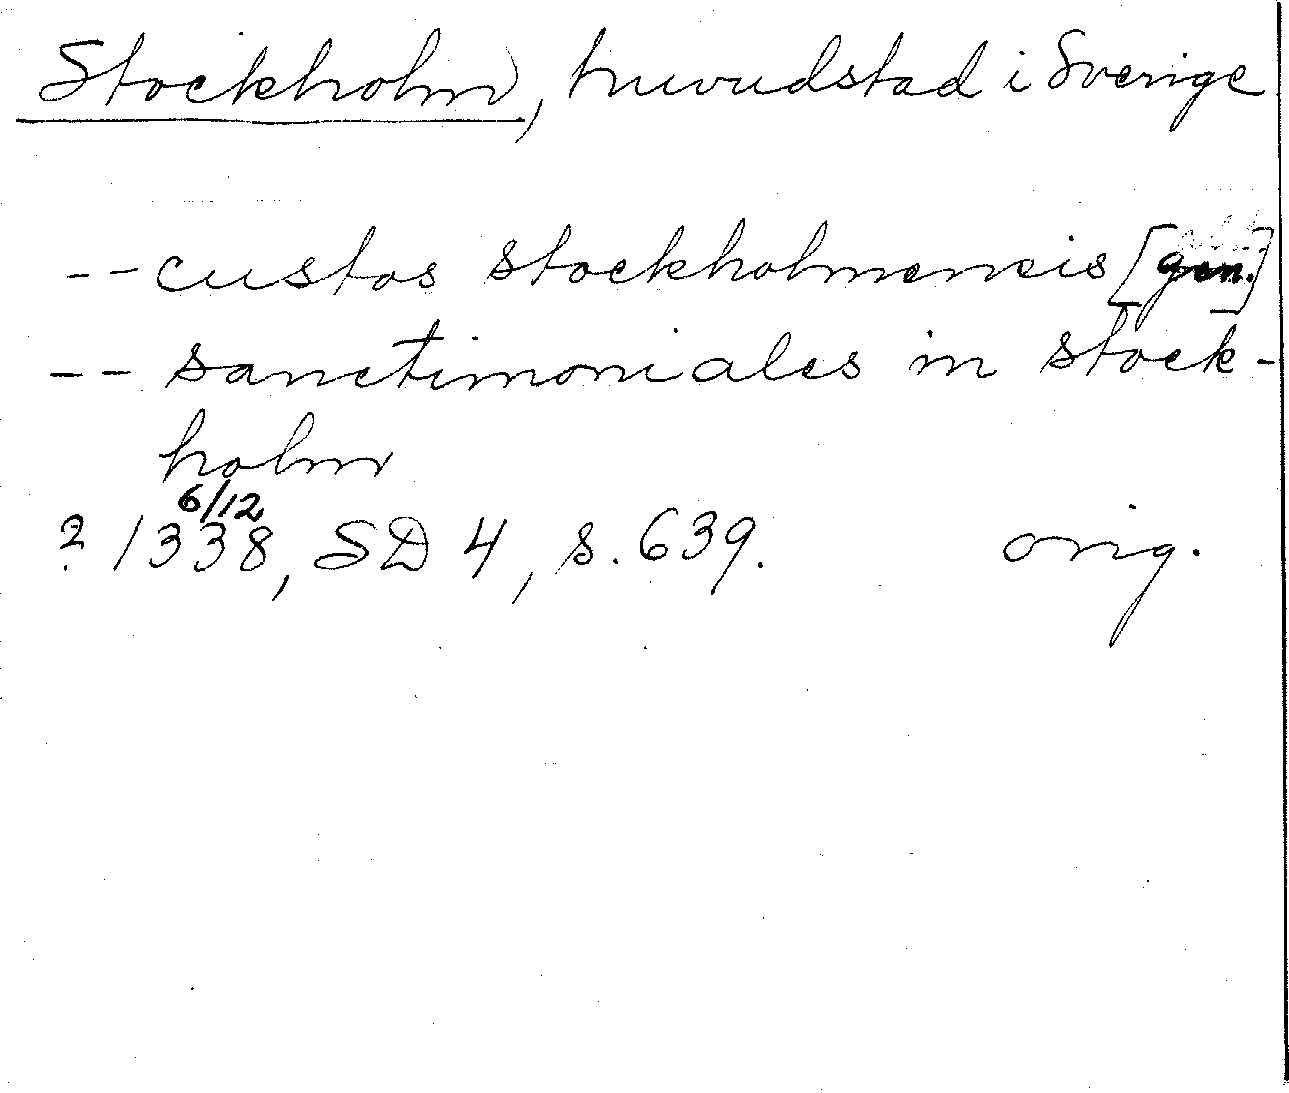 Stockholm, huvudstad i Sverige
-- custos stockholmensis [gen.]
-- sanctimoniales in stock-
holm
6/12
? 1338, SD 4, s. 639. orig.